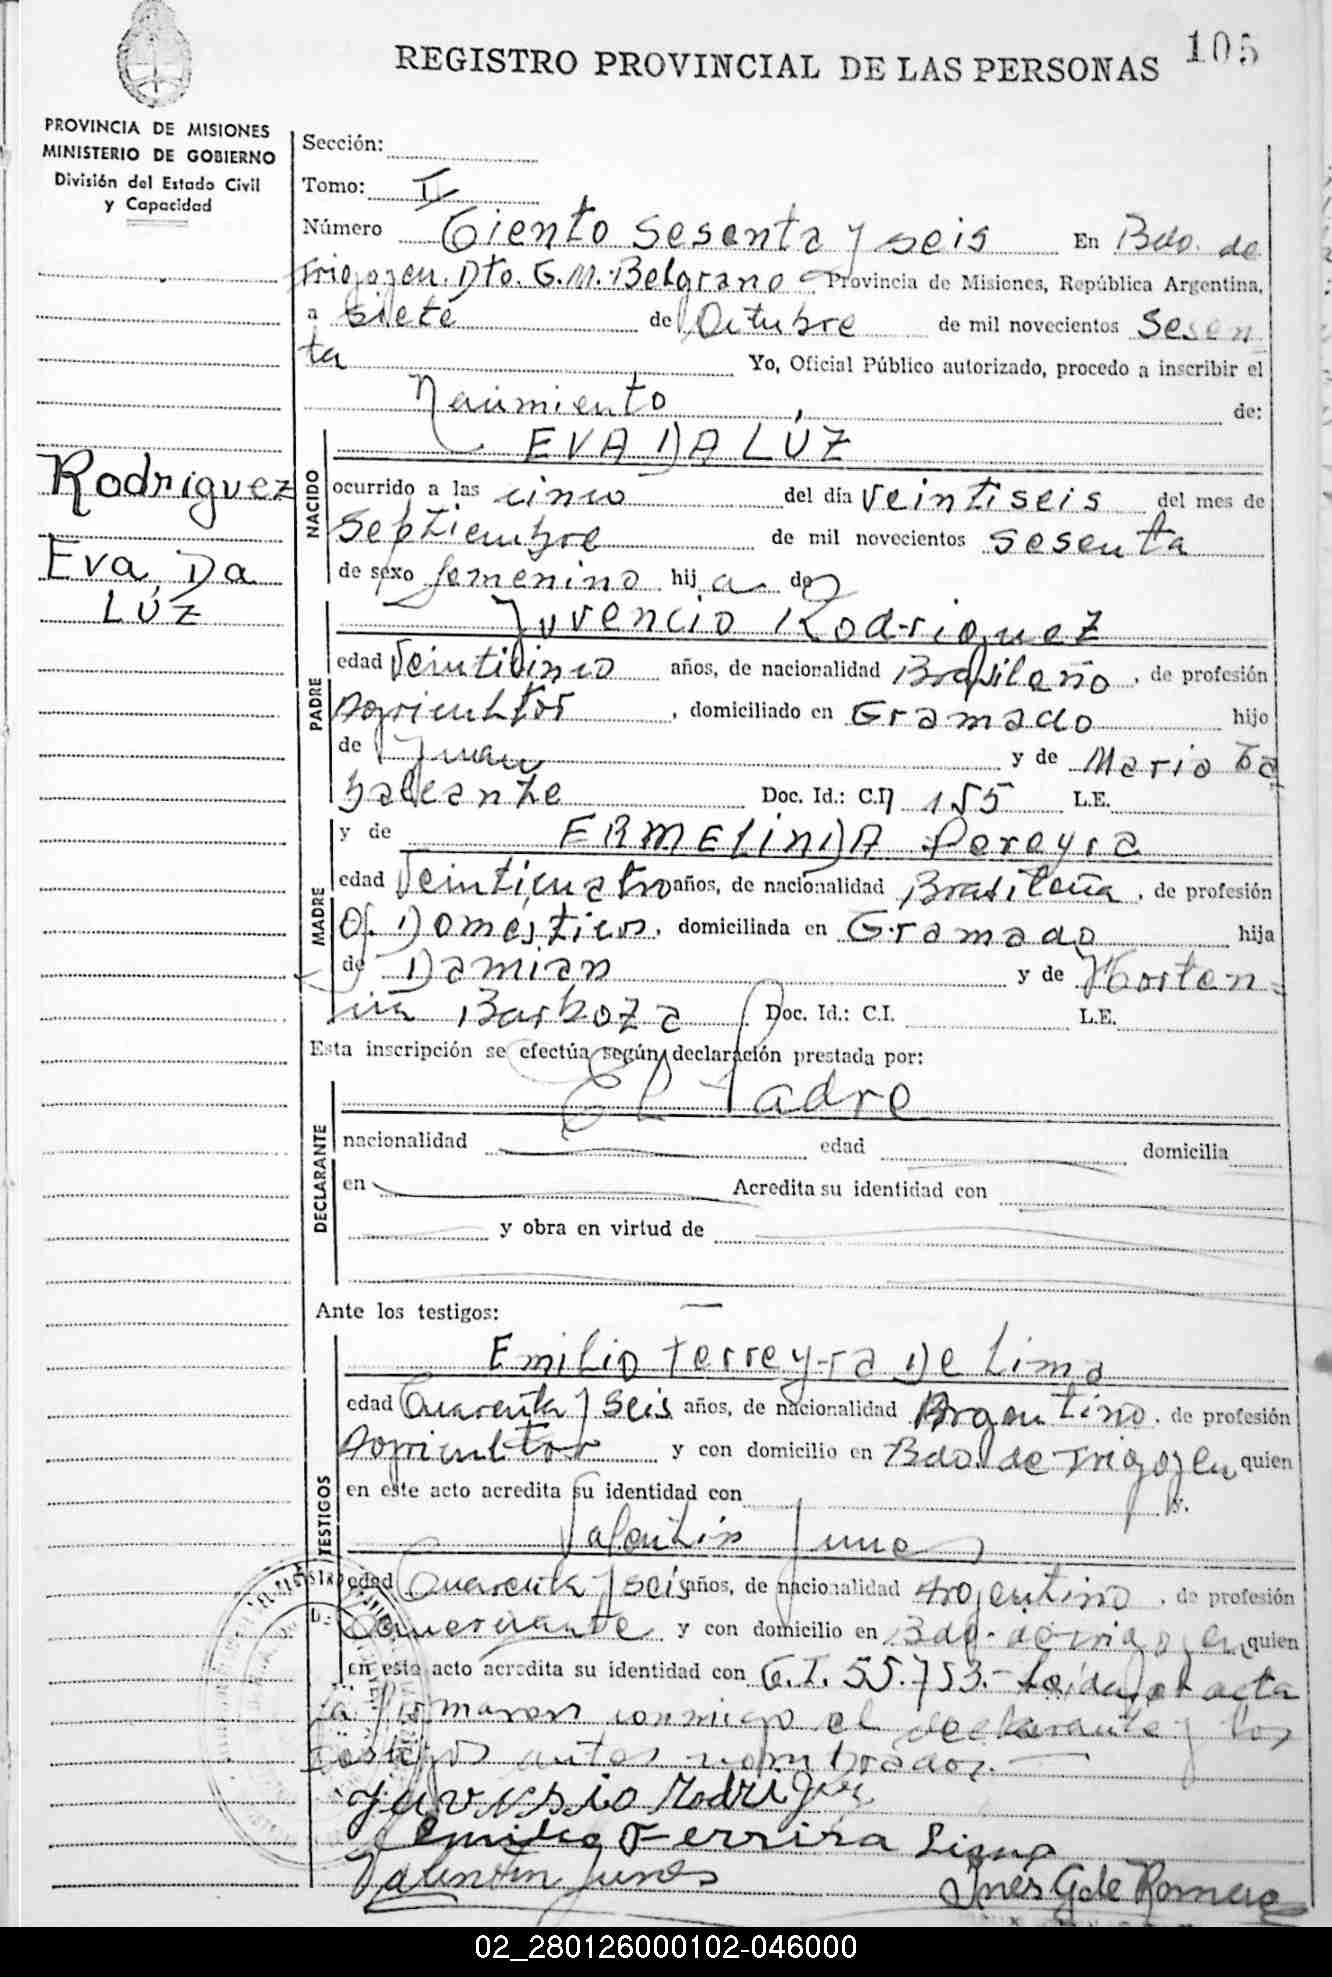 105
REGISTRO PROVINCIAL DE LAS PERSONAS
PROVINCIA DE MISIONES
MINISTERIO DE GOBIERNO
División del Estado Civil
y Capacidad
Rodriguez
Eva Da
LÚZ
Sección:
Tomo: II
Número Ciento sesenta y seis En Bdo. de
Irigoyen. Dto. G. M. Belgrano Provincia de Misiones, República Argentina,
a siete de Octubre de mil novecientos Sesen
ta Yo, Oficial Público autorizado, procedo a inscribir el
Nacimiento de:
NACIDO
EVA DA LÚZ
ocurrido a las cinco del día veintiseis del mes de
septiembre de mil novecientos sesenta
de sexo femenino hij a de
PADRE
Juvencio Rodriguez
edad Veinticinco años, de nacionalidad Brasileño, de profesión
Agricultor, domiciliado en Gramado hijo
de Juan y de Maria Ca
balcante Doc. Id.: C.I. 155 L.E.
MADRE
y de ERMELINDA Pereyra
edad Veinticuatro años, de nacionalidad Brasileña, de profesión
Of. Domésticos, domiciliada en Gramado hija
de Damian y de Horten
cia Barboza Doc. Id.: C.I. L.E.
Esta inscripción se efectúa según declaración prestada por:
DECLARANTE
El Padre
nacionalidad edad domicilia
en Acredita su identidad con
y obra en virtud de
Ante los testigos:
TESTIGOS
Emilio Ferreyra De Lima
edad Cuarenta y seis años, de nacionalidad Argentino, de profesión
Agricultor y con domicilio en Bdo. de Irigoyen quien
en este acto acredita su identidad con y.
Valentin
edad Cuarenta y seis años, de nacionalidad Argentino, de profesión
Comerciante y con domicilio en Bdo. de Irigoyen quien
en este acto acredita su identidad con C.I. 55.753.- Leida el acta
la firmaron conmigo el declarante y los
testigos antes nombrados.
Juvensio Rodriguez
Emilio Ferrira Lima
Valentin
Ines G de Romero
02_280126000102-046000